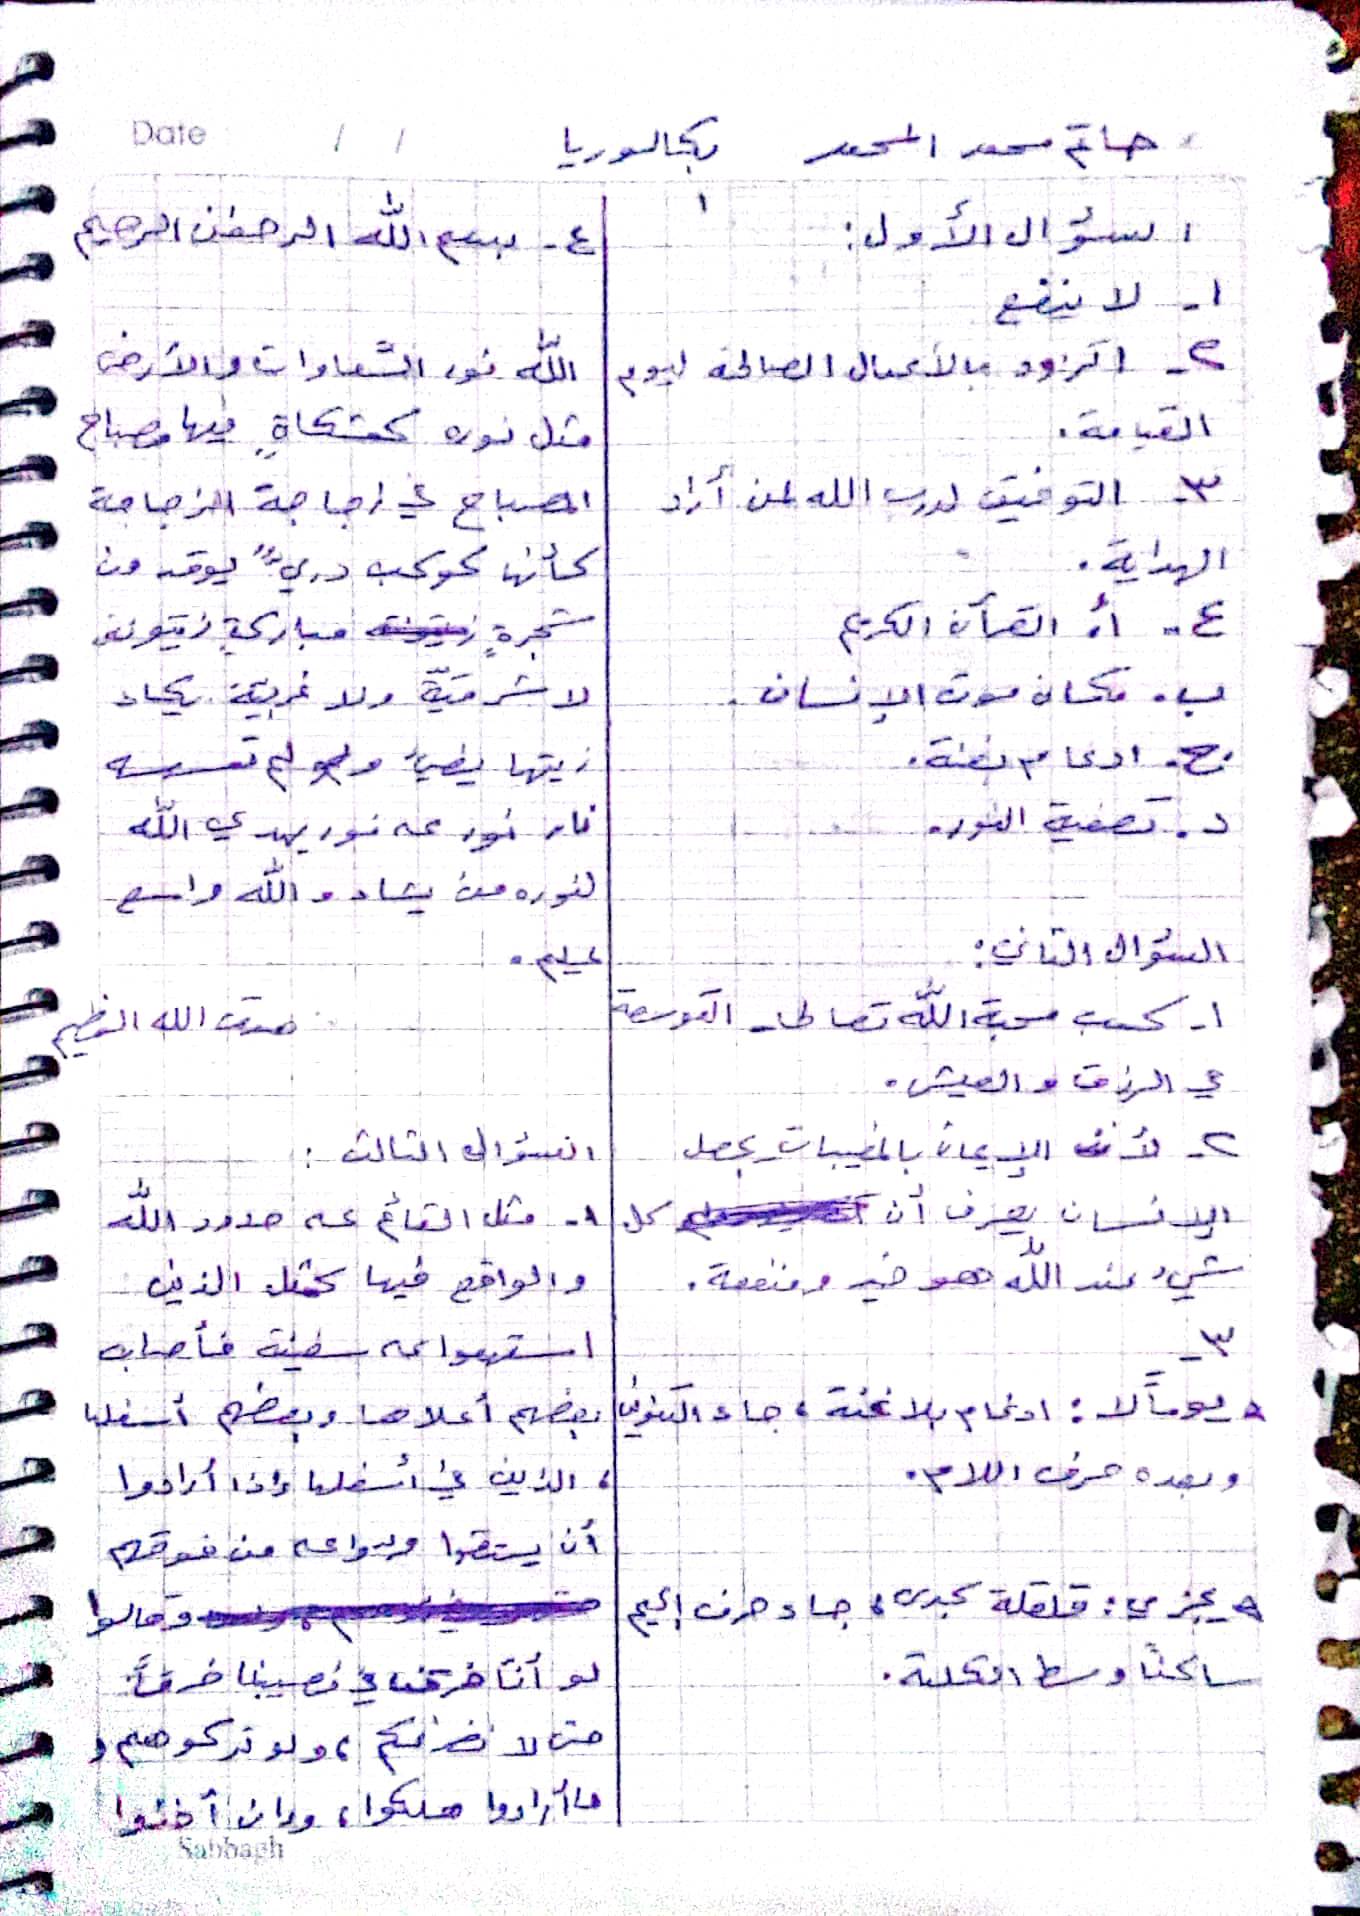 Date / /
حاتم محمد المحمد بكالوريا
١
السؤال الأول:
١- لا ينفع
٢- التزود بالأعمال الصالحة ليوم
القيامة.
٣- التوفيق لدرب الله لمن أراد
الهداية.
٤- أ. القرآن الكريم
ب. مكان موت الإنسان.
ج. ادغام بغنة.
د. تصفية النور.
السؤال الثاني:
١- كسب محبة الله تعالى - التوسعة
في الرزق والعيش.
٢- لأن الإيمان بالمغيبات يجعل
الإنسان يعرف أن كل
شيء عند الله هو خير ومنفعة.
٣-
يوماً لا: ادغام بلا غنة، جاء التنوين
وبعده حرف اللام.
يجزي: قلقلة كبرى، جاء حرف الجيم
ساكناً وسط الكلمة.
٤- بسم الله الرحمن الرحيم
الله نور السَّماوات والأرض
مثل نوره كمشكاةٍ فيها مصباح
المصباح في زجاجة الزجاجة
كأنها كوكب دريٌّ يوقد من
شجرةٍ مباركةٍ زيتونة
لا شرقيّة ولا غربيّة يكاد
زيتها يضيء ولو لم تمسسه
نار نور على نور يهدي الله
لنوره من يشاء والله واسع
عليم.
صدق الله العظيم
السؤال الثالث:
١- مثل القائم على حدود الله
والواقع فيها كمثل الذين
استهموا على سفينة فأصاب
بعضهم أعلاها وبعضهم أسفلها
، الذين في أسفلها إذا أرادوا
أن يستقوا مروا على من فوقهم
وقالوا
لو أنّا خرقنا في نصيبنا خرقاً
حتى لا نضركم، ولو تركوهم و
ما أرادوا هلكوا، وإن أخذوا
Sabbagh